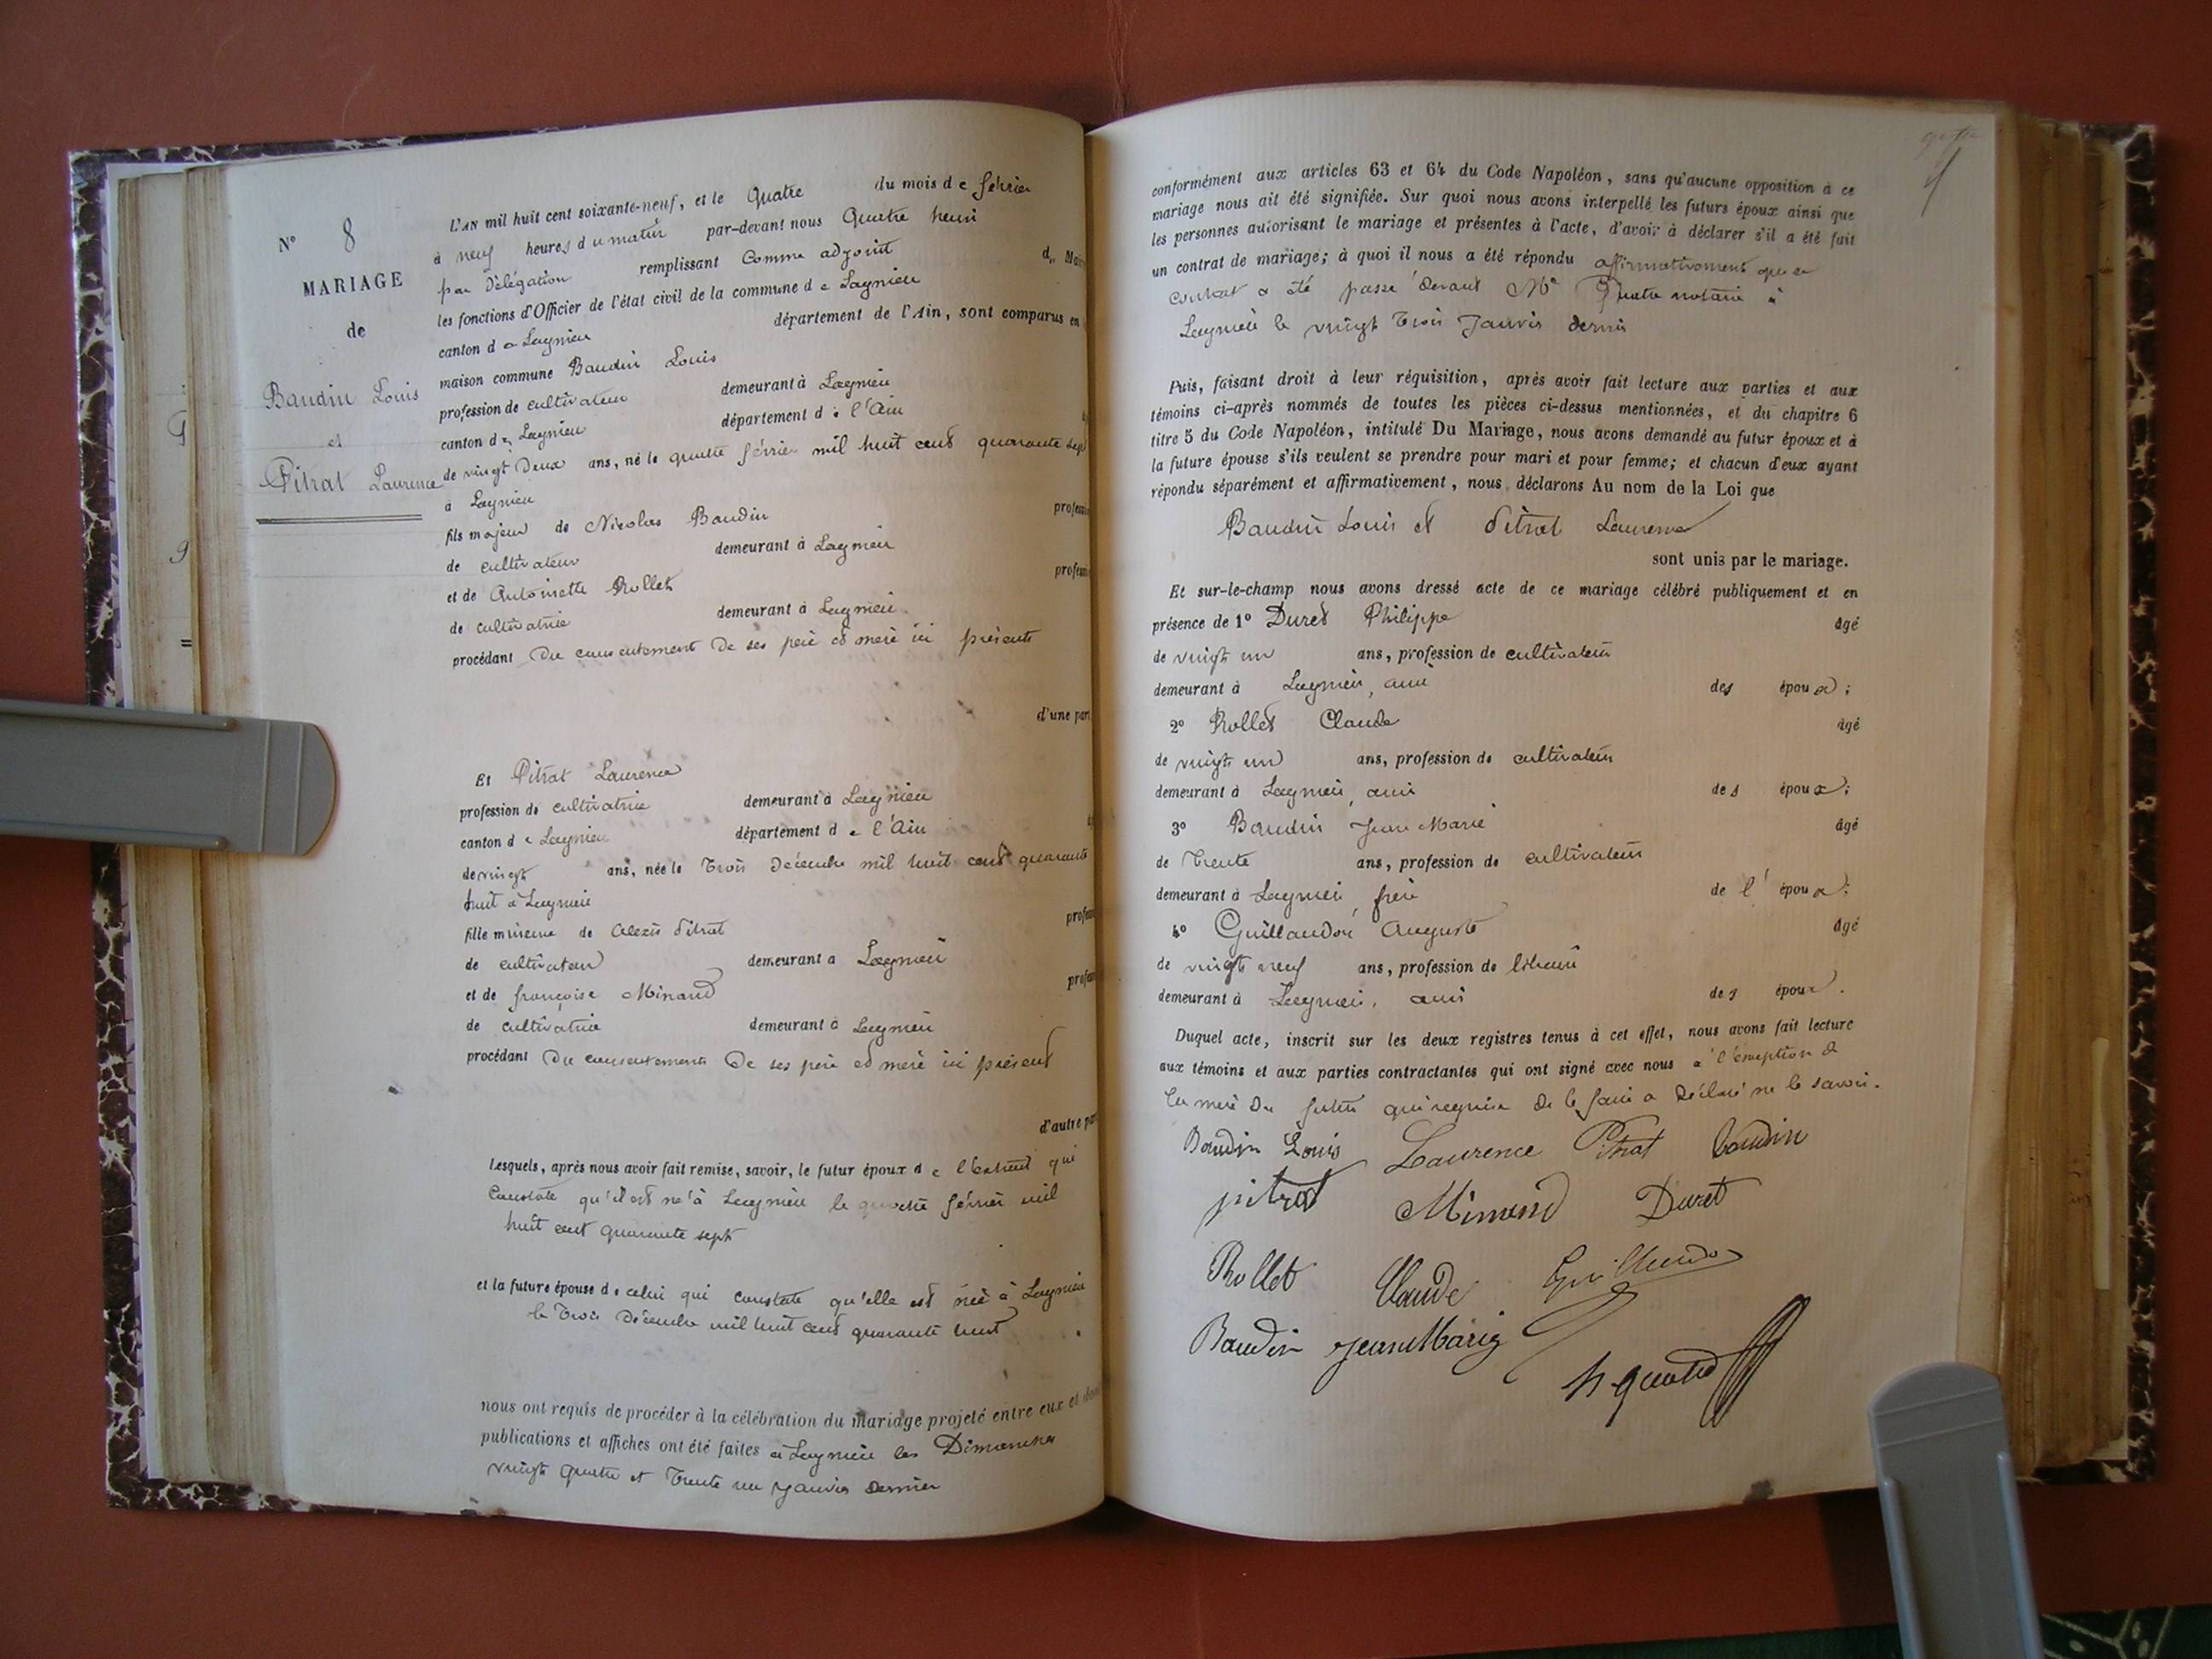 N° 8
MARIAGE
de
Baudin Louis
et
Pitrat Laurence
L'AN mil huit cent soixante-neuf, et le Quatre du mois de février
à neuf heures du matin par-devant nous Quatre henri
par Délégation remplissant Comme adjoint
les fonctions d'Officier de l'état civil de la commune de Lagnieu
canton de Lagnieu département de l'Ain, sont comparus en
maison commune Baudin Louis
profession de cultivateur demeurant à Lagnieu
canton de Lagnieu département de l'Ain
de vingt Deux ans, né le quatre février mil huit cent quarante sept
à Lagnieu
fils majeur de Nicolas Baudin
de cultivateur demeurant à Lagnieu
et de Antoinette Rollet
de cultivatrice demeurant à Lagnieu
procédant Du consentement De ses père et mère ici présents
d'une part
Et Pitrat Laurence
profession de cultivatrice demeurant à Lagnieu
canton de Lagnieu département de l'Ain
de vingt ans, née le Trois Décembre mil huit cent quarante
huit à Lagnieu
fille mineure de Alexis Pitrat
de cultivateur demeurant à Lagnieu
et de françoise Minand
de cultivatrice demeurant à Lagnieu
procédant Du consentement De ses père et mère ici présent
d'autre part
Lesquels, après nous avoir fait remise, savoir, le futur époux de l'extrait qui
Constate qu'il est né à Lagnieu le quatre février mil
huit cent quarante sept
et la future épouse de celui qui constate qu'elle est née à Lagnieu
le Trois Décembre mil huit cent quarante huit
nous ont requis de procéder à la célébration du mariage projeté entre eux et dont
publications et affiches ont été faites à Lagnieu les Dimanches
vingt quatre et Trente un janvier dernier
conformément aux articles 63 et 64 du Code Napoléon, sans qu'aucune opposition à ce
mariage nous ait été signifiée. Sur quoi nous avons interpellé les futurs époux ainsi que
les personnes autorisant le mariage et présentes à l'acte, d'avoir à déclarer s'il a été fait
un contrat de mariage; à quoi il nous a été répondu affirmativement que ce
contrat a été passé devant Me Quatre notaire à
Lagnieu le vingt Trois Janvier dernier
Puis, faisant droit à leur réquisition, après avoir fait lecture aux parties et aux
témoins ci-après nommés de toutes les pièces ci-dessus mentionnées, et du chapitre 6
titre 5 du Code Napoléon, intitulé Du Mariage, nous avons demandé au futur époux et à
la future épouse s'ils veulent se prendre pour mari et pour femme; et chacun d'eux ayant
répondu séparément et affirmativement, nous déclarons Au nom de la Loi que
Baudin Louis et Pitrat Laurence
sont unis par le mariage.
Et sur-le-champ nous avons dressé acte de ce mariage célébré publiquement et en
présence de 1° Duret Philippe âgé
de vingt un ans, profession de cultivateur
demeurant à Lagnieu, ami des époux;
2° Rollet Claude âgé
de vingt un ans, profession de cultivateur
demeurant à Lagnieu, ami des époux;
3° Baudin Jean Marie âgé
de Trente ans, profession de cultivateur
demeurant à Lagnieu, frère de l'époux;
4° Guillaudon Auguste âgé
de vingt neuf ans, profession de
demeurant à Lagnieu, ami des époux.
Duquel acte, inscrit sur les deux registres tenus à cet effet, nous avons fait lecture
aux témoins et aux parties contractantes qui ont signé avec nous à l'exception de
la mère du futur qui requise de le faire a Déclaré ne le savoir.
Baudin Louis Laurence Pitrat baudin
pitrat Minand Duret
Rollet Claude
Baudin jean Marie
h quatre